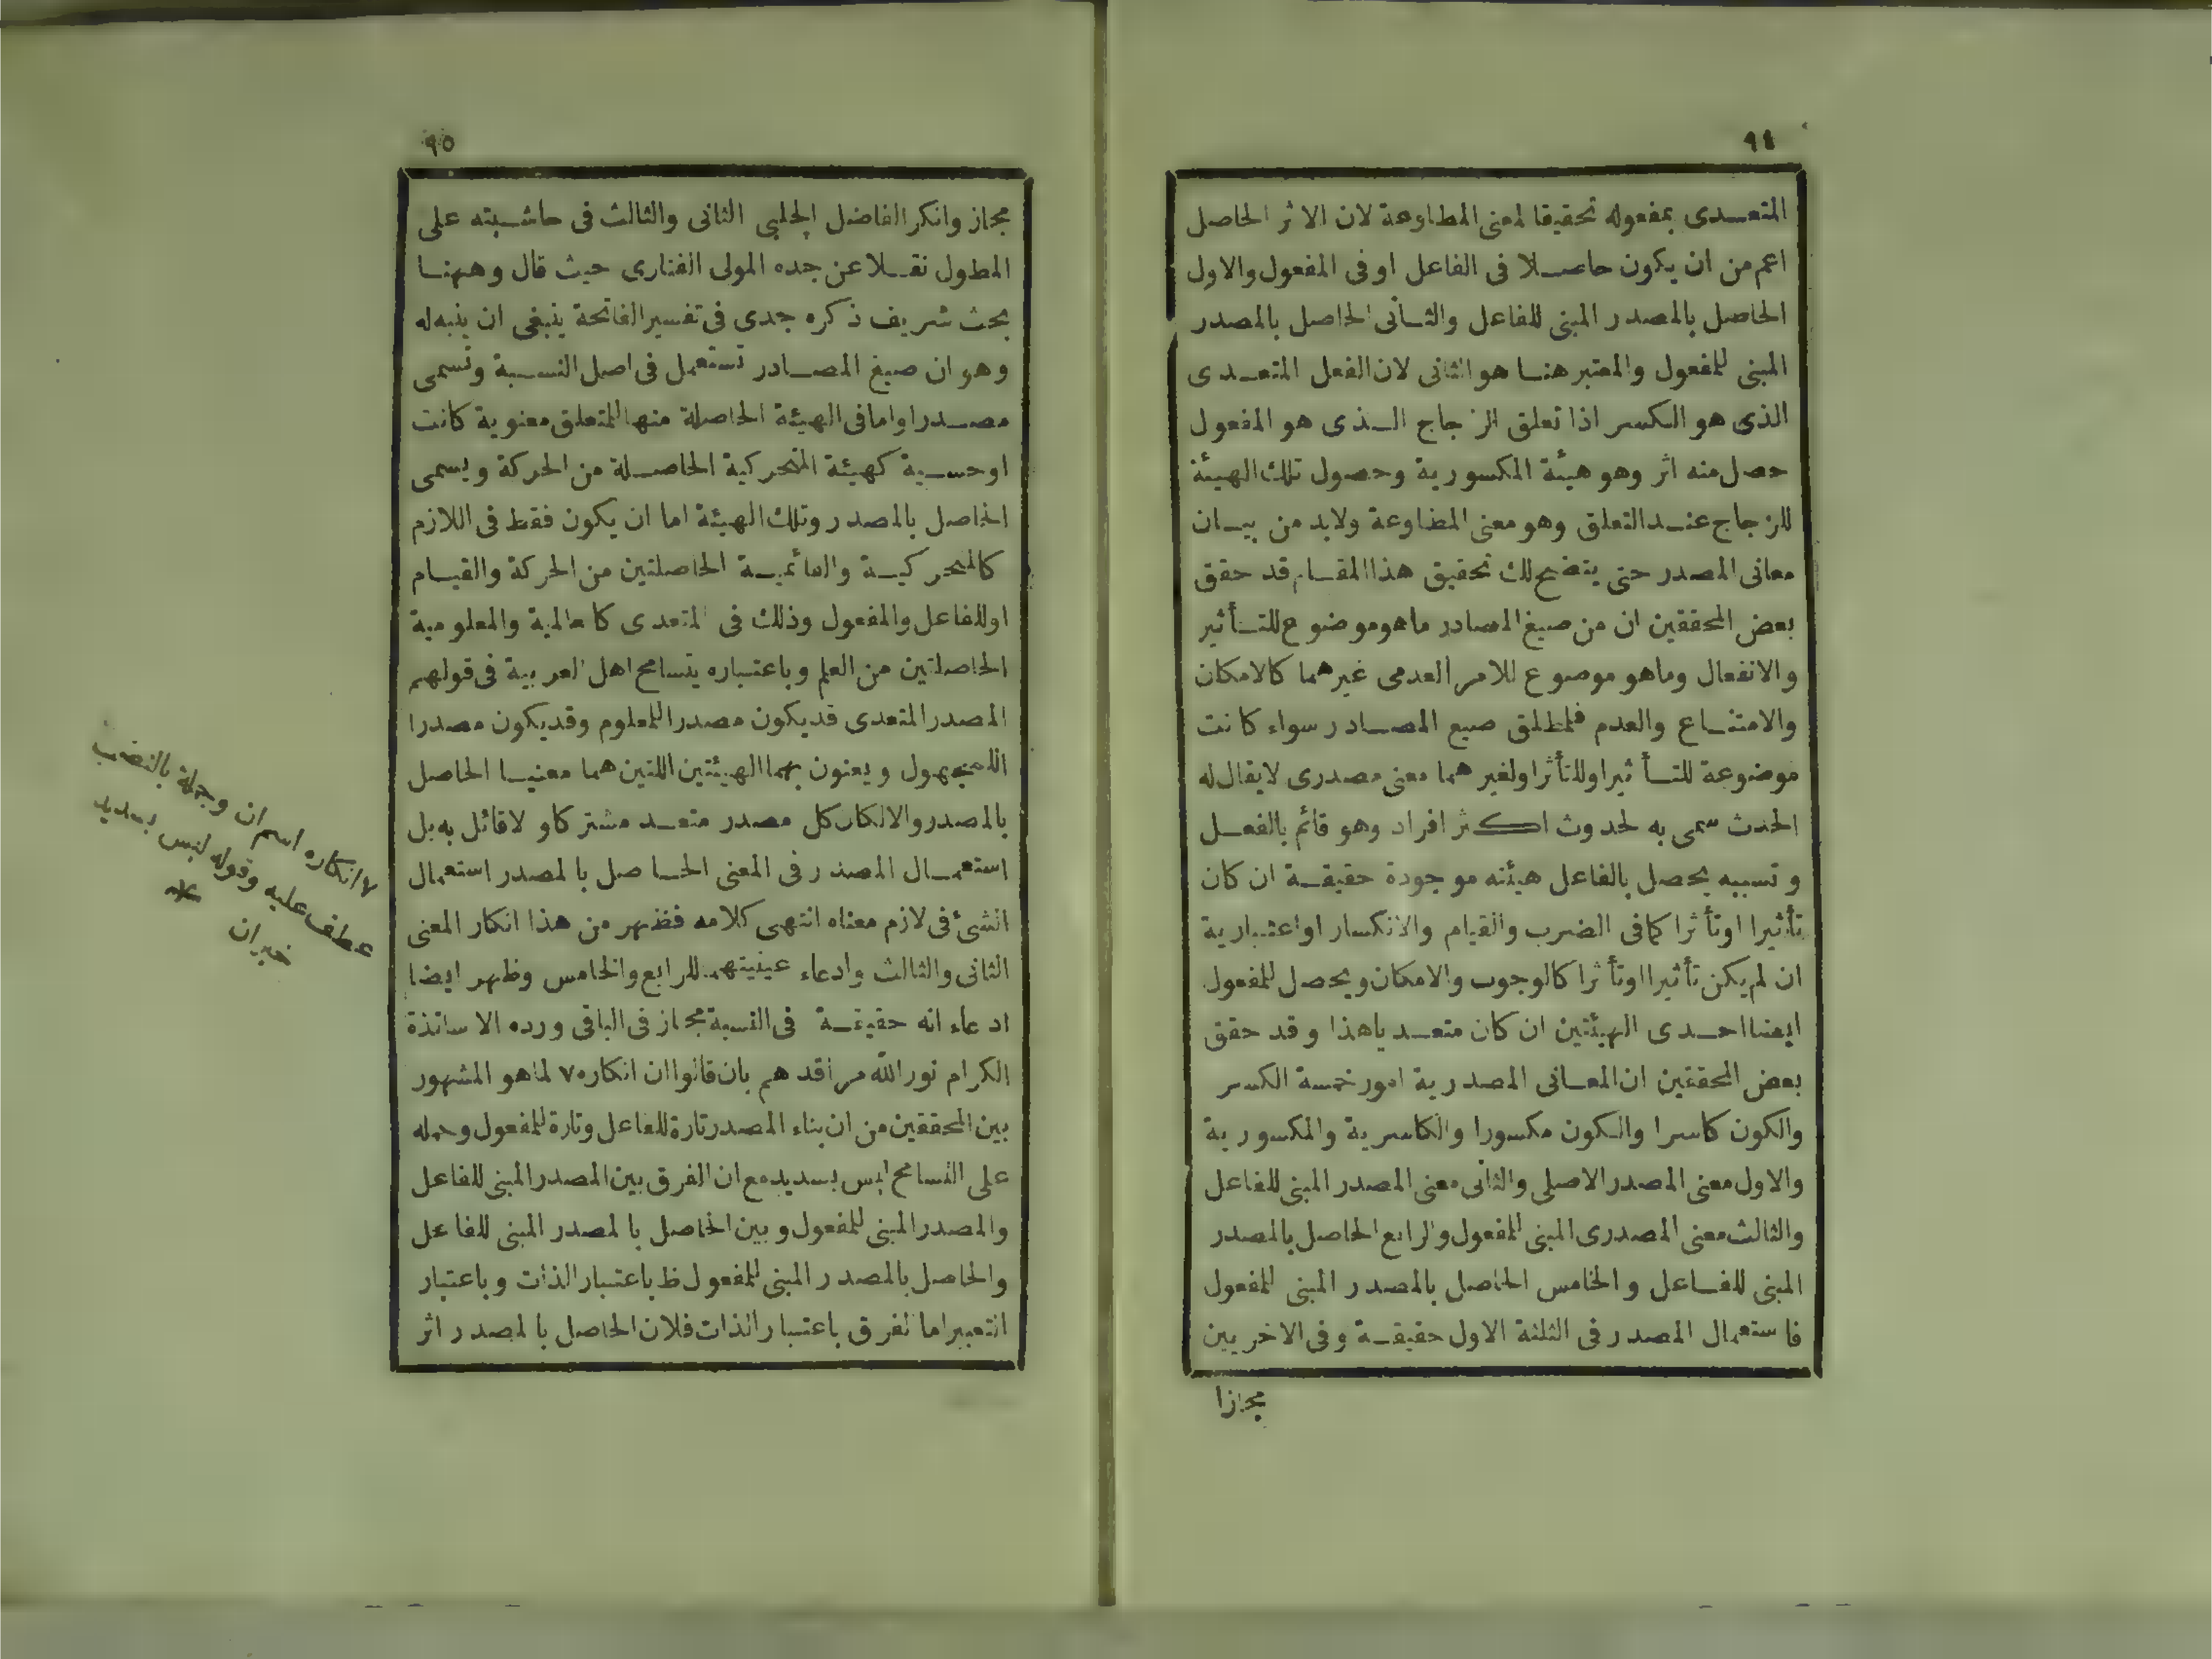 ٩٤
المتعدى بمفعوله تحقيقا لمعنى المطاوعة لان الاثر الحاصل
اعم من ان يكون حاصلا فى الفاعل او فى المفعول والاول
الحاصل بالمصدر المبنى للفاعل والثانى الحاصل بالمصدر
المبنى للمفعول والمعتبر هنا هو الثانى لان الفعل المتعدى
الذى هو الكسر اذا تعلق الزجاج الذى هو المفعول
حصل منه اثر وهو هيئة المكسورية وحصول تلك الهيئة
للزجاج عند التعلق وهو معنى المطاوعة ولابد من بيان
معانى المصدر حتى يتضح لك تحقيق هذا المقام قد حقق
بعض المحققين ان من صيغ المصادر ما هو موضوع للتأثير
والانفعال وما هو موضوع للامر العدمى غيرهما كالامكان
والامتناع والعدم فمطلق صيغ المصادر سواء كانت
موضوعة للتأثير او للتأثر او لغيرهما معنى مصدرى لا يقال له
الحدث سمى به لحدوث اكثر افراد وهو قائم بالفعل
وتسببه يحصل بالفاعل هيئته موجودة حقيقة ان كان
تأثيرا او تأثرا كما فى الضرب والقيام والانكسار او اعتبارية
ان لم يكن تأثيرا او تأثرا كالوجوب والامكان ويحصل للمفعول
ايضا احدى الهيئتين ان كان متعديا هذا وقد حقق
بعض المحققين ان المعانى المصدرية امور خمسة الكسر
والكون كاسرا والكون مكسورا والكاسرية والمكسورية
والاول معنى المصدر الاصلى والثانى معنى المصدر المبنى للفاعل
والثالث معنى المصدرى المبنى للمفعول والرابع الحاصل بالمصدر
المبنى للفاعل والخامس الحاصل بالمصدر المبنى للمفعول
فاستعمال المصدر فى الثلثة الاول حقيقة وفى الاخريين
مجازا
٩٥
مجاز وانكر الفاضل الچلبى الثانى والثالث فى حاشيته على
المطول نقلا عن جده المولى الفنارى حيث قال وههنا
بحث شريف ذكره جدى فى تفسير الفاتحة ينبغى ان ينبه له
وهو ان صيغ المصادر تستعمل فى اصل النسبة وتسمى
مصدرا واما فى الهيئة الحاصلة منها للمتعلق معنوية كانت
او حسية كهيئة المتحركية الحاصلة من الحركة ويسمى
الحاصل بالمصدر وتلك الهيئة اما ان يكون فقط فى اللازم
كالمتحركية والقائمية الحاصلتين من الحركة والقيام
او للفاعل والمفعول وذلك فى المتعدى كالعالمية والمعلومية
الحاصلتين من العلم وباعتباره يتسامح اهل العربية فى قولهم
المصدر المتعدى قد يكون مصدرا للمعلوم وقد يكون مصدرا
للمجهول ويعنون بهما الهيئتين اللتين هما معنيا الحاصل
بالمصدر والا لكان كل مصدر متعد مشتركا ولا قائل به بل
استعمال المصدر فى المعنى الحاصل بالمصدر استعمال
الشئ فى لازم معناه انتهى كلامه فظهر من هذا انكار المعنى
الثانى والثالث وادعاء عينيتهما للرابع والخامس وظهر ايضا
ادعاء انه حقيقة فى النسبة مجاز فى الباقى ورده الاساتذة
الكرام نور الله مراقدهم بان قالوا ان انكاره ٧ لما هو المشهور
بين المحققين من ان بناء المصدر تارة للفاعل وتارة للمفعول وحمله
على التسامح ليس بسديد مع ان الفرق بين المصدر المبنى للفاعل
والمصدر المبنى للمفعول وبين الحاصل بالمصدر المبنى للفاعل
والحاصل بالمصدر المبنى للمفعول ظ باعتبار الذات وباعتبار
التعبير اما الفرق باعتبار الذات فلان الحاصل بالمصدر اثر
٧ انكاره اسم ان وحمله بالنصب
عطف عليه وقوله ليس بسديد
خبر ان